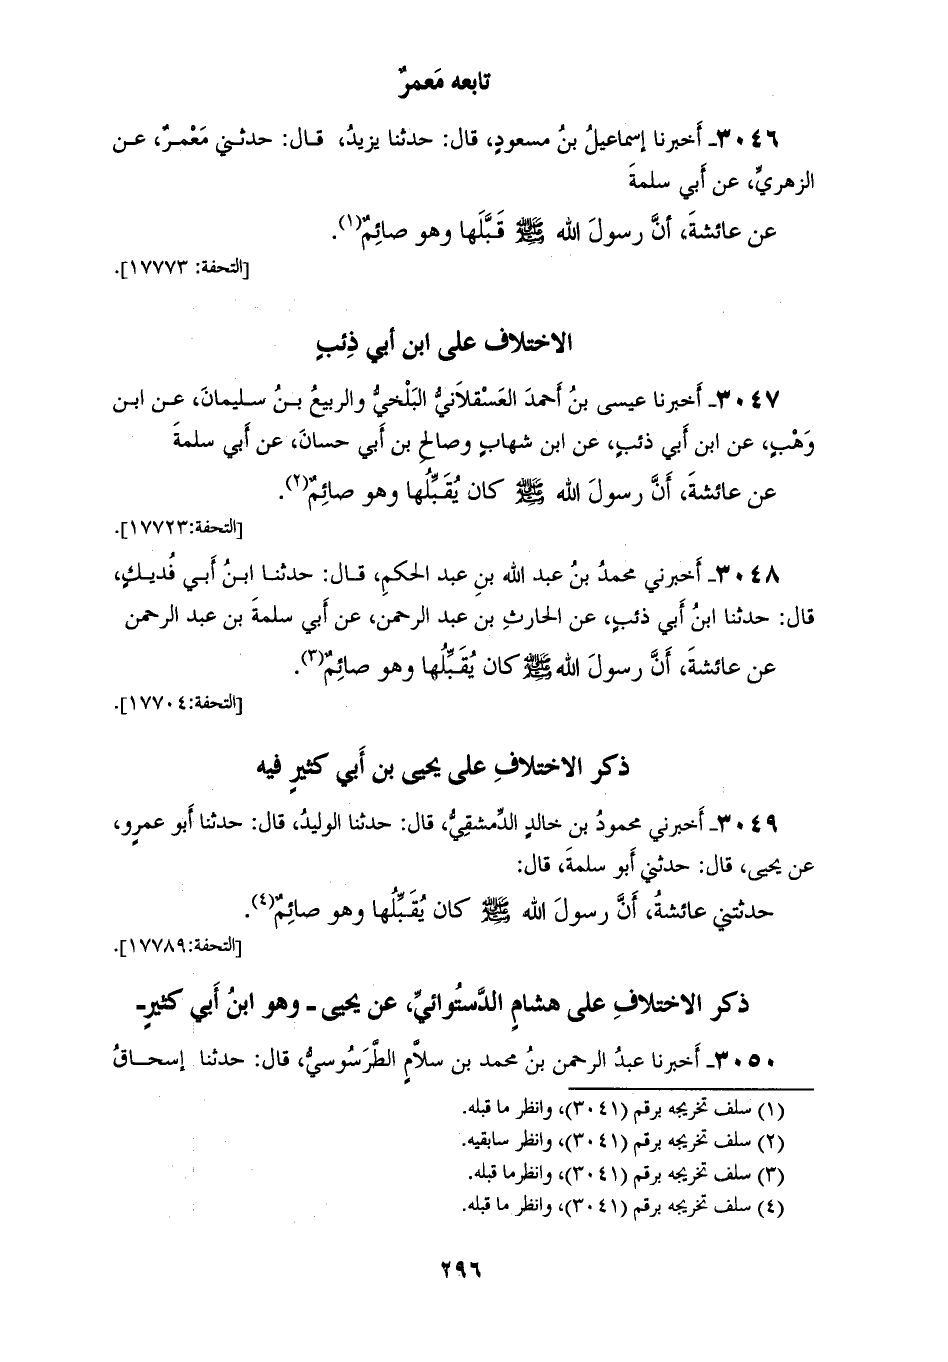 تابعه مَعمرٌ
٣٠٤٦ـ أَخبرنا إسماعيلُ بنُ مسعودٍ، قال: حدثنا يزيدُ، قـال: حدثـني مَعْمـرٌ، عـن
الزهريِّ، عن أَبي سلمةَ
عن عائشةَ، أنَّ رسولَ الله ﷺ قَبَّلَها وهو صائِمٌ(١).
[التحفة: ١٧٧٧٣].
الاختلاف على ابن أبي ذِئبٍ
٣٠٤٧ـ أَخبرنا عيسى بنُ أَحمدَ العَسْقلاَنيُّ البَلْخيُّ والربيعُ بـنُ سـليمانَ، عـن ابـن
وَهْبٍ، عن ابن أَبي ذئبٍ، عن ابن شهابٍ وصالحِ بن أَبي حسانَ، عن أَبي سلمةَ
عن عائشةَ، أَنَّ رسولَ الله ﷺ كان يُقَبِّلُها وهو صائِمٌ(٢).
[التحفة:١٧٧٢٣].
٣٠٤٨ـ أَخبرني محمدُ بنُ عبد الله بنِ عبد الحكمِ، قـال: حدثنـا ابـنُ أَبـي فُديـكٍ،
قال: حدثنا ابنُ أَبي ذئبٍ، عن الحارثِ بن عبد الرحمن، عن أَبي سلمةَ بن عبد الرحمن
عن عائشةَ، أَنَّ رسولَ الله ﷺ كان يُقَبِّلُها وهو صائِمٌ(٣).
[التحفة:١٧٧٠٤].
ذكر الاختلافِ على يحيى بن أَبي كثيرٍ فيه
٣٠٤٩ـ أَخبرني محمودُ بن خالدٍ الدِّمشقيُّ، قال: حدثنا الوليدُ، قال: حدثنا أَبو عمرٍو،
عن يحيى، قال: حدثني أَبو سلمةَ، قال:
حدثتني عائشةُ، أَنَّ رسولَ الله ﷺ كان يُقَبِّلُها وهو صائِمٌ(٤).
[التحفة:١٧٧٨٩].
ذكر الاختلافِ على هشامٍ الدَّستُوائيِّ، عن يحيى ـ وهو ابنُ أَبي كثيرٍـ
٣٠٥٠ـ أَخبرنا عبدُ الرحمن بنُ محمد بن سلاَّمٍ الطَّرَسُوسيُّ، قال: حدثنا إسحـاقُ
(١) سلف تخريجه برقم (٣٠٤١)، وانظر ما قبله.
(٢) سلف تخريجه برقم (٣٠٤١)، وانظر سابقيه.
(٣) سلف تخريجه برقم (٣٠٤١)، وانظرما قبله.
(٤) سلف تخريجه برقم (٣٠٤١)، وانظر ما قبله.
٢٩٦